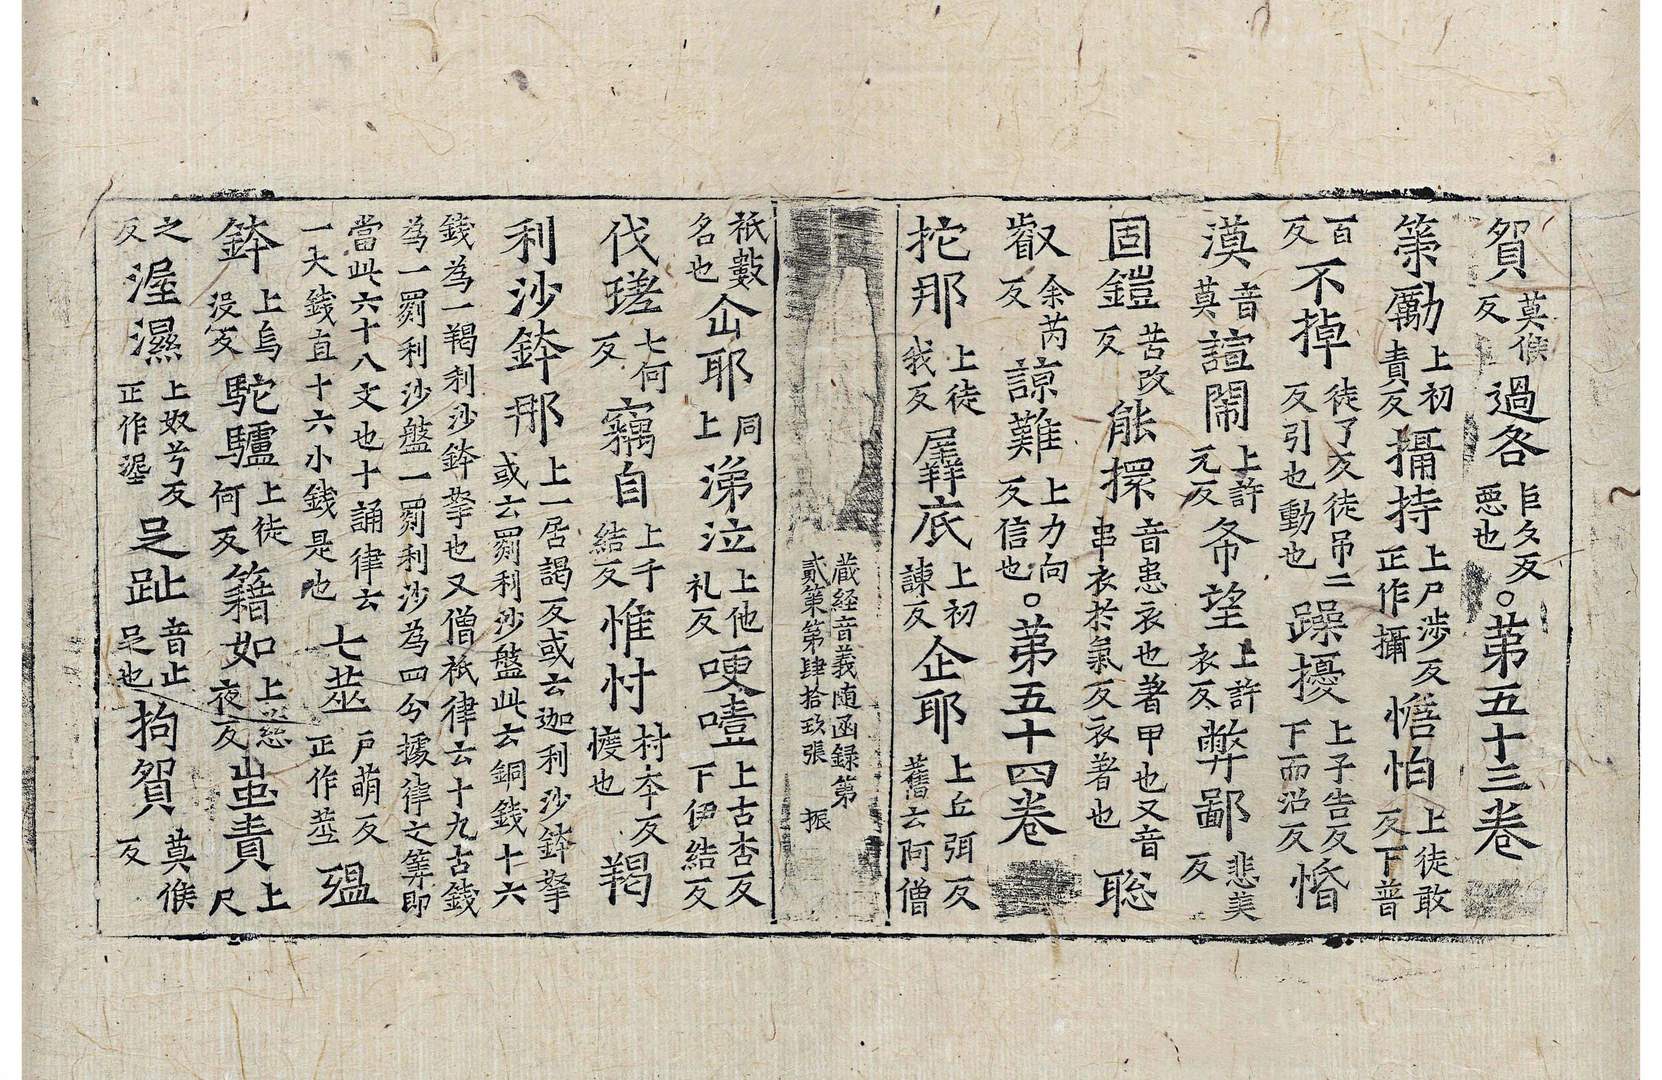 賀莫侯反過各乍久反惡也。第五十三卷
策勵上初責反攝持上尸涉反正作攝憺怕上徒敢反下普
百反不掉徒了反徒吊二反引也動也躁擾上子告反下而沼反惛
漠音莫諠鬧上許元反希望上許衣反弊鄙悲美反
固鎧苦改反能擐音患衣也著甲也又音串衣於氣反衣著也聡
叡余芮反諒難上力向反信也。第五十四卷
拕那上徒我反羼底上初諫反企耶上丘弭反舊云阿僧
蔵経音義随函録第貳第第肆拾玖張 振
祇數名也仚耶同上涕泣上他礼反哽噎上古杏反下伊結反
伐瑳七何反竊自上千結反惟忖村本反懷也羯
利沙鉢那上一居謁反或云迦利沙鉢拏或云罽利沙盤此云銅錢十六
錢為一羯利沙鉢拏也又僧祇律云十九古錢為一罽利沙盤一罽利沙為四分據律之筭即
當此六十八文也十誦律云一大錢直十六小錢是也七莖戶萌反正作莖殟
鉢上烏沒反駝驢上徒何反籍如上慈夜反蚩責上尺
之反渥濕上奴兮反正作埿足趾音止足也拘賀莫侯反